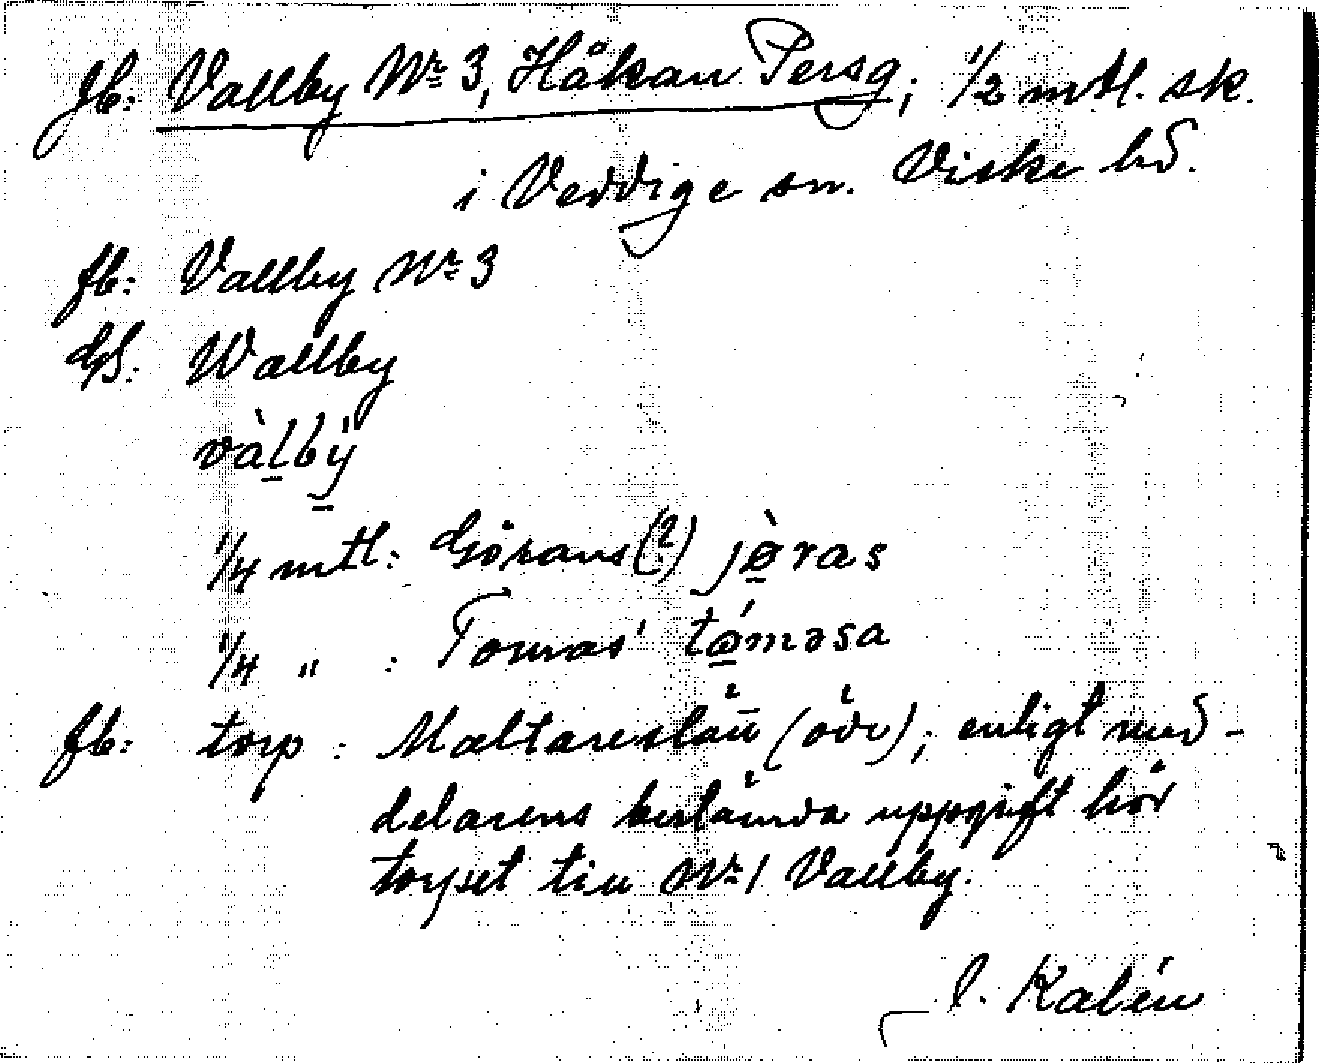 jb: Vallby Nr 3, Håkan Persg; 1/2 mtl. sk.
i Veddige sn. Viske hd.
fb: Vallby Nr 3
GS: Wallby
và̱lbÿ̱
1/4 mtl: Görans(?) jø̱̀ras
1/4 " : Tomas' tǿ̱məsa
fb: torp: Maltareslätt (öde); enligt med-
delarens bestämda uppgift hör
torpet till Nr 1 Vallby.
J. Kalén